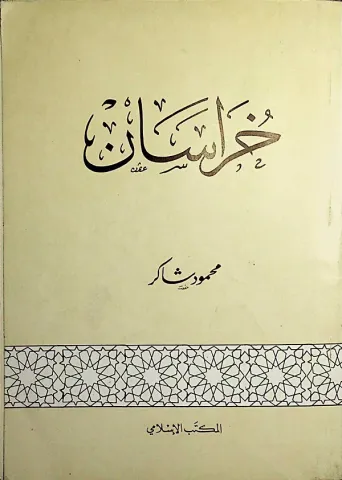 خُرَاسَان
محمود شاكر
المكتب الإسلامي